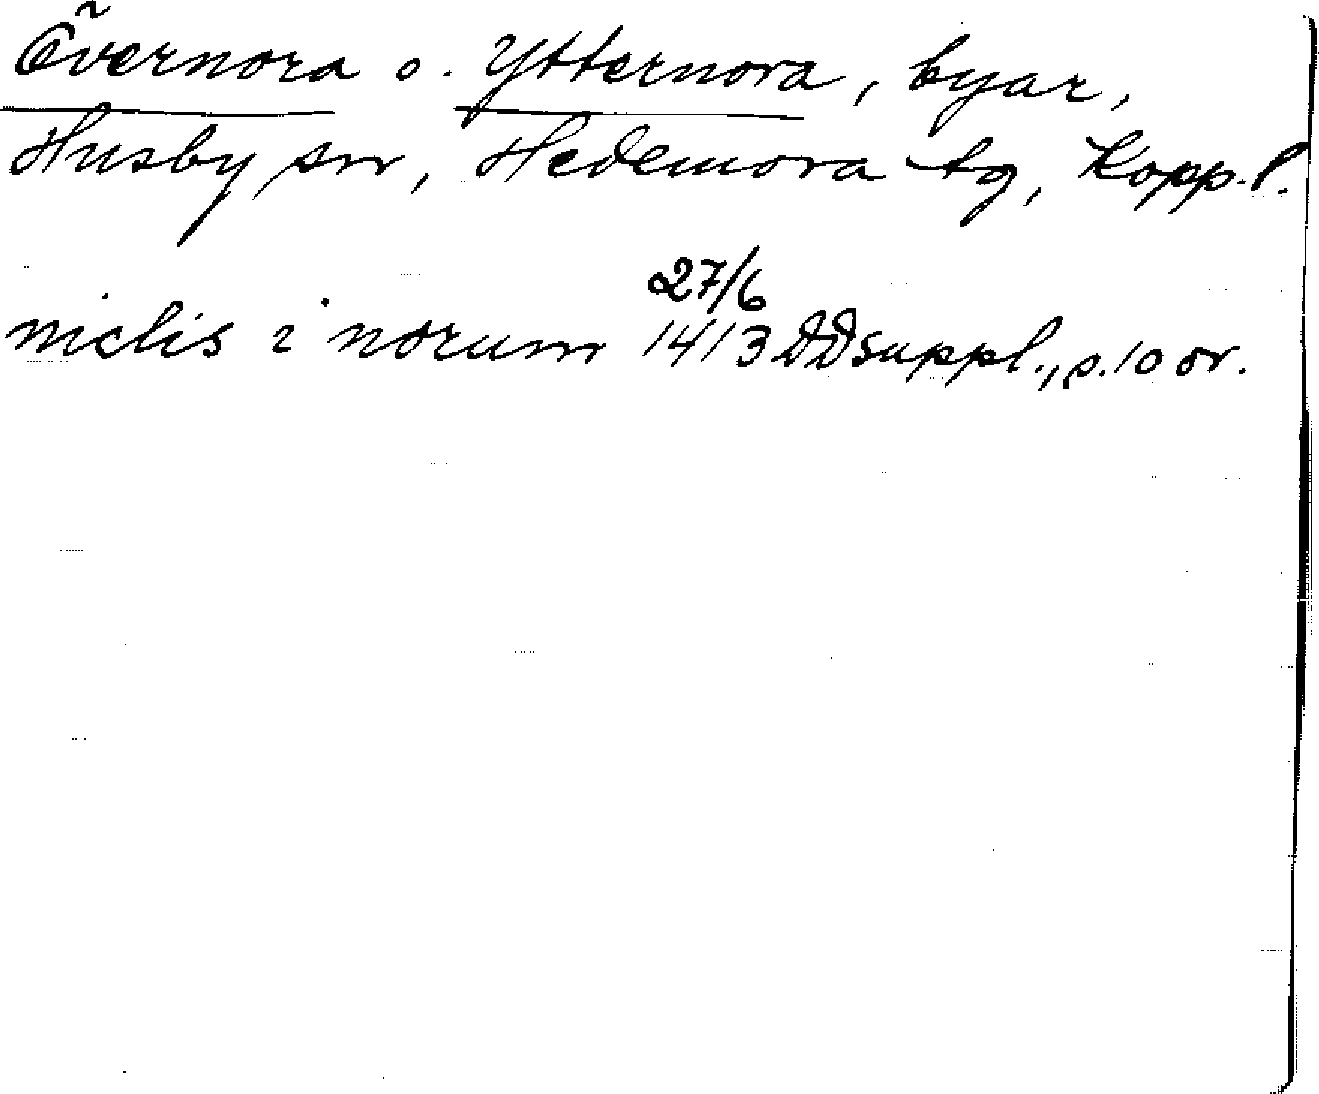 Övernora o. Ytternora, byar,
Husby sn, Hedemora tg, Kopp. l.
27/6
niclis i norum 1413 DDsuppl., s. 10 or.